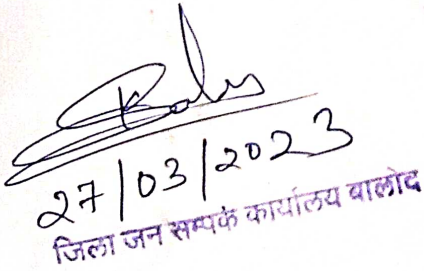 27/03/2023
जिला जन सम्पर्क कार्यालय बालोद